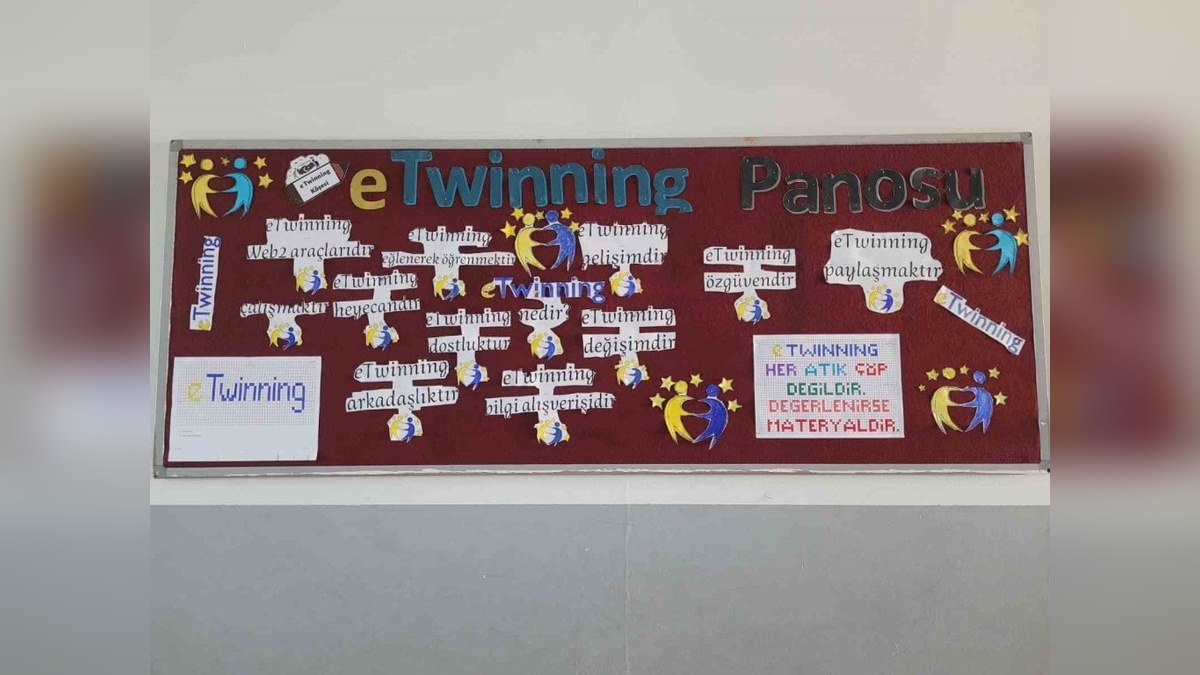 eTwinning Panosu
eTwinning
Köşesi
eTwinning
Web2 araçlarıdır
eTwinning
eğlenerek öğrenmektir
eTwinning
gelişimdir
eTwinning
özgüvendir
eTwinning
paylaşmaktır
eTwinning
çalışmaktır
eTwinning
heyecandır
eTwinning
nedir?
eTwinning
dostluktur
eTwinning
değişimdir
eTwinning
eTwinning
arkadaşlıktır
eTwinning
bilgi alışverişidir
eTwinning
E TWINNING
HER ATIK ÇÖP
DEĞİLDİR.
DEĞERLENİRSE
MATERYALDİR.